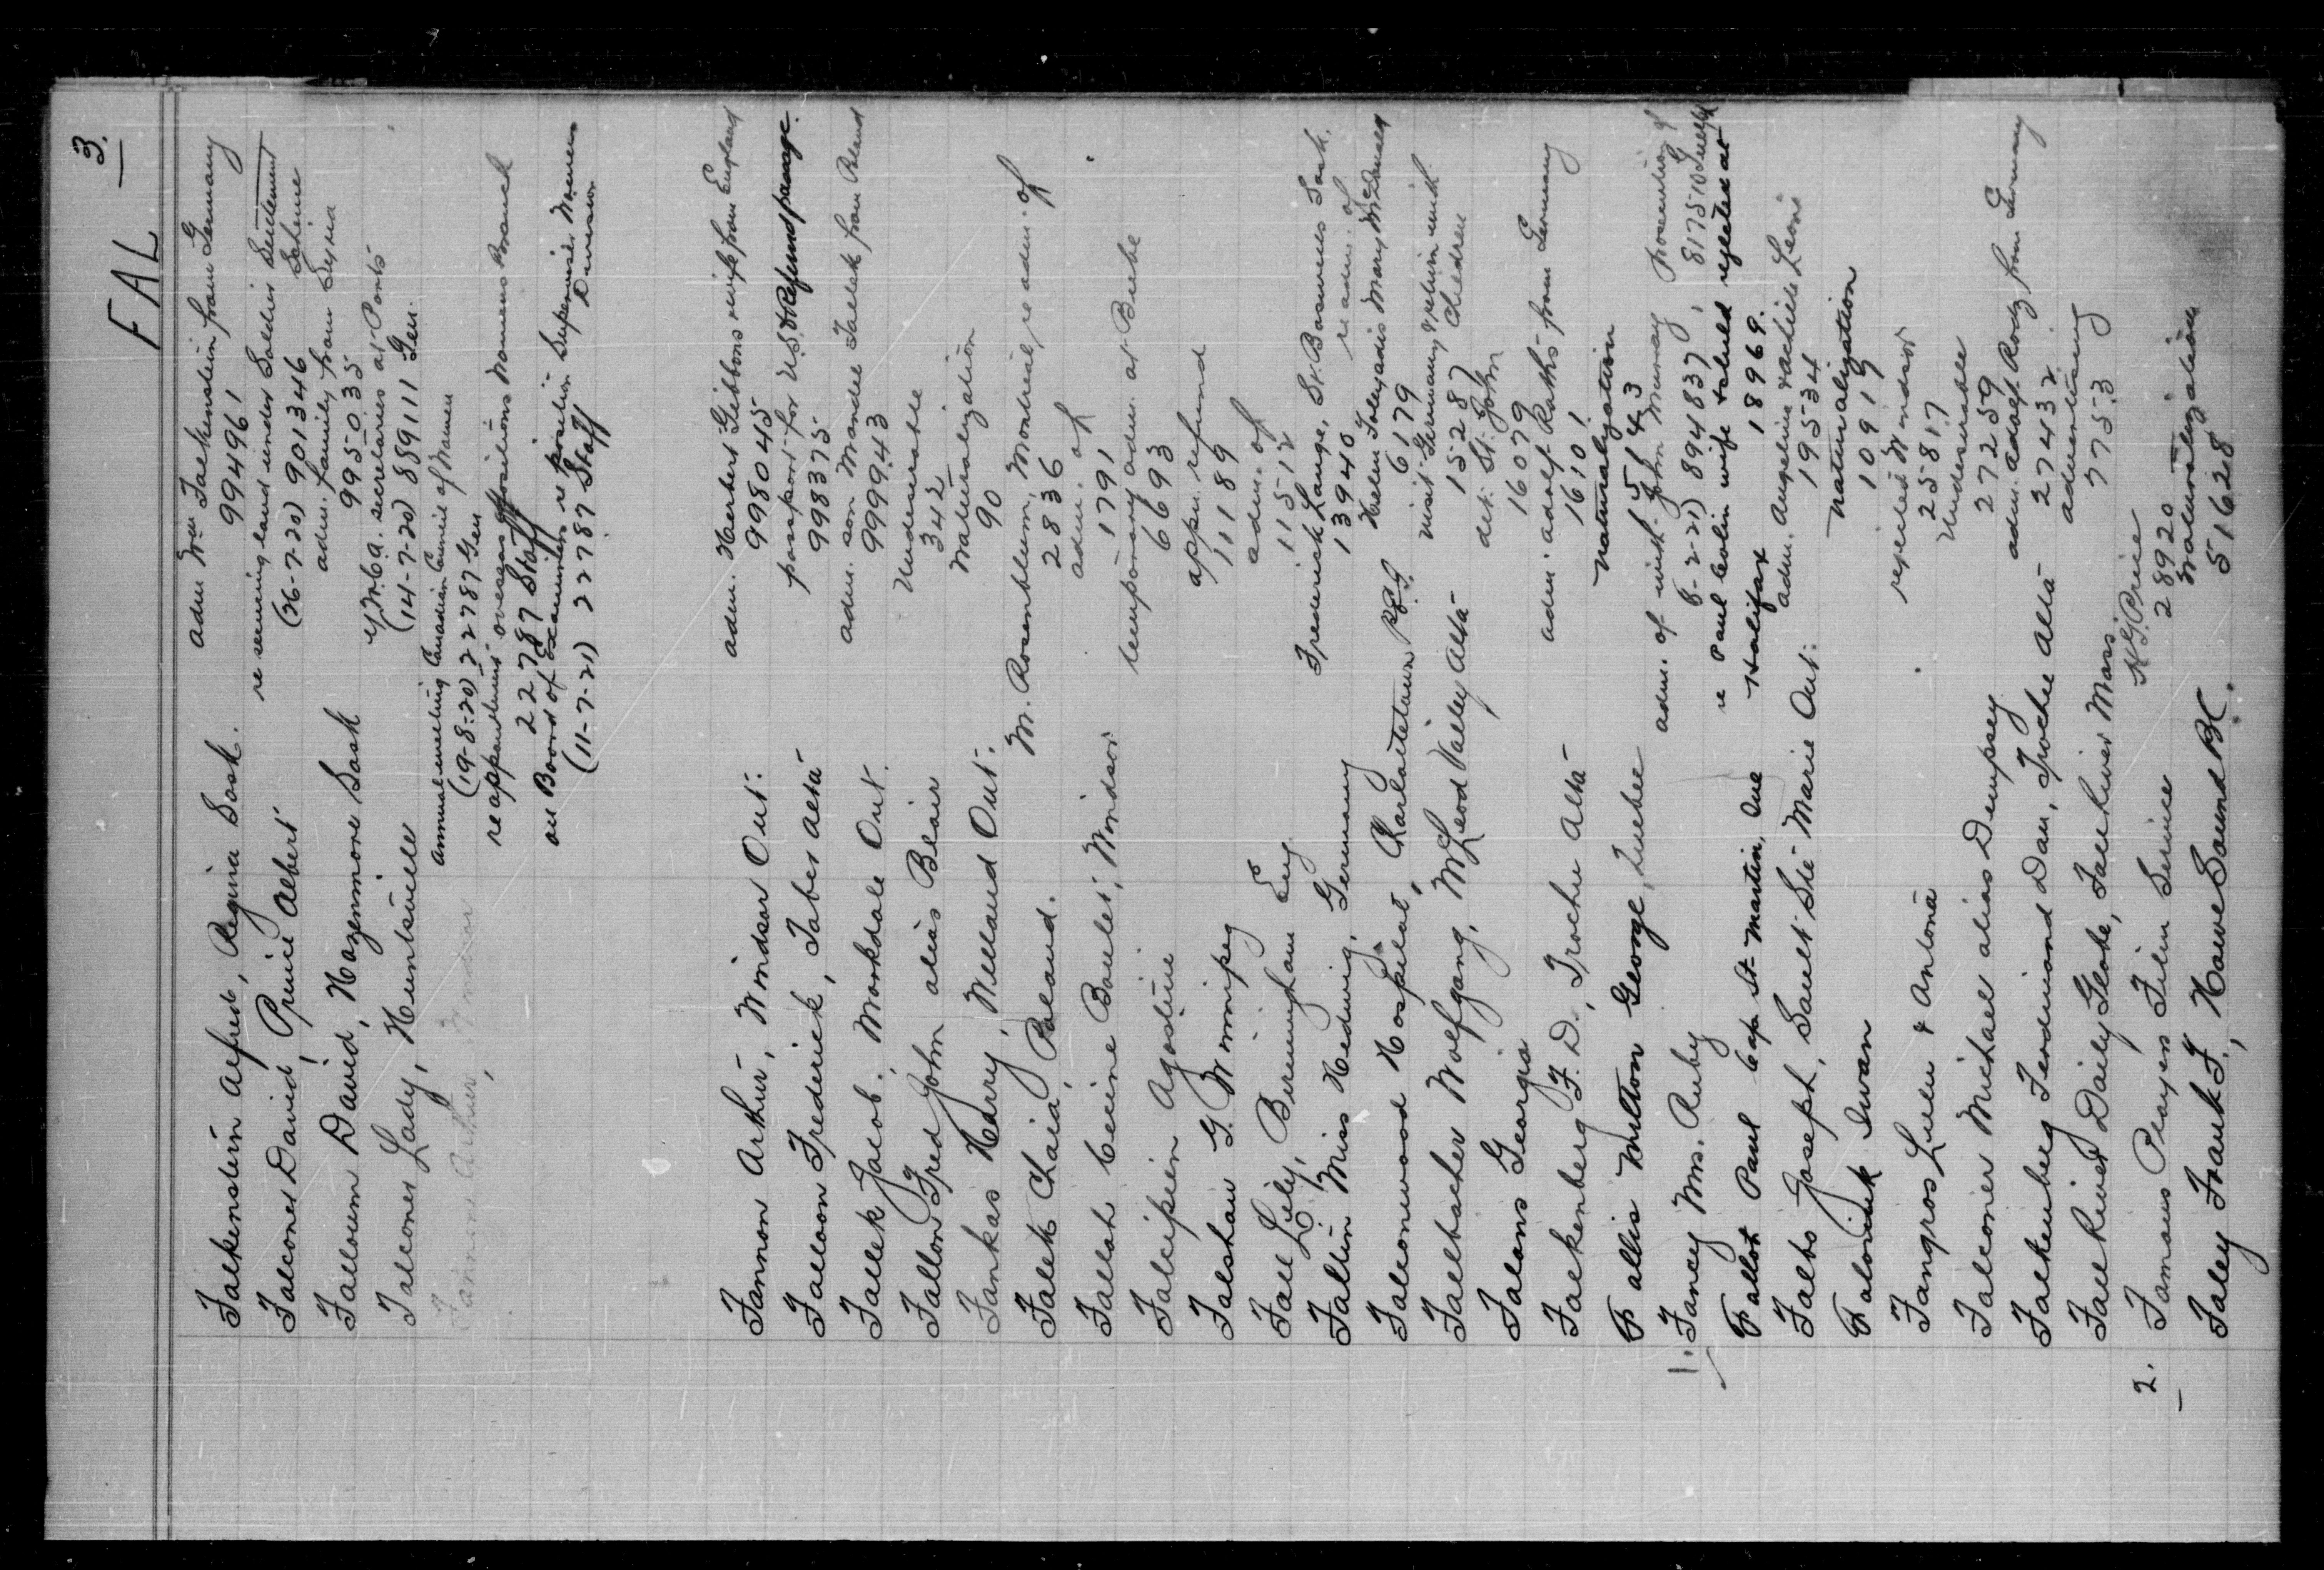 FAL 3.
Falkenstein Alfred, Regina Sask. adm Wm Falkenstein from Germany
994961
Falconer David, Prince Albert re securing land under Soldier Settlement Scheme
(26-7-20) 901346
Falloum David, Hazenmore Sask adm. family from Syria
995035
Falconer Lady, Huntsville Y.M.C.A. secretaries at Ports
(14-7-20) 889111 Gen.
Fannon Arthur, Windsor annual meeting Canadian Council of Women
(19-8-20) 22787 Gen
re appointment overseas positions Womens Branch
22787 Staff
on Board of Examiners re position Supervisor Womens Division
(11-7-21) 22787 Staff
Fannon Arthur, Windsor Ont. adm. Herbert Gibbons wife from England
998045
Falloon Frederick, Taber Alta passport for U.S. & Refund passage.
998375
Fallek Jacob, Markdale Ont. adm. son Mandel Fallek from Poland
999943
Fallon Fred John alias Blair Undesirable
342
Fankas Harry, Welland Ont. Naturalization
90
Falek Chaia, Poland. M. Rosenblum, Montreal, re adm. of
2836
Fallah Cecine Boulos, Windsor adm. of
1791
Falcipien Agostine temporary adm. at Buebe
6693
Falshaw G. Winnipeg appn. refund
11189
Fall Lily, Birmingham Eng adm. of
11512
Faltin Miss Hedwig, Germany Frederick Lange, St. Boswells Sask. re adm. of
13940
Falconwood Hospital, Charlottetown P.E.I. Helen Foley adis Mary McDonald
6179
Fallbacher Wolfgang, McLeod Valley Alta visit Germany & return with children
15287
Falans Georgia det. St. John
16079
Falkenberg F. D., Trochu Alta adm. Adolf Raths from Germany
16101
Fallis Milton George, Quebec naturalization
15143
1. Fancey Mrs. Ruby adm. of with John Murray prosecution of
6-2-21) 894837, 817510 Guelph
Fallot Paul Cap St-Martin, Que re Paul Colin wife & child rejected at Halifax
18969.
Falbo Joseph, Sault Ste Marie Ont. adm. Angelina & achille Leoni
19534
Faloniuk Iwan naturalization
10919
Fangros Luen & Antona rejected Windsor
25817
Falconer Michael alias Dempsey Undesirable
27259
Falkenberg Ferdinand Dan, Trochu Alta adm. Adolf Rody from Germany
27432
Fall River Daily Globe, Fall River Mass. advertising
7753
2. Famous Players Film Service H.G. Price
28920
Faley Frank F., Howe Sound B.C. naturalization
51628